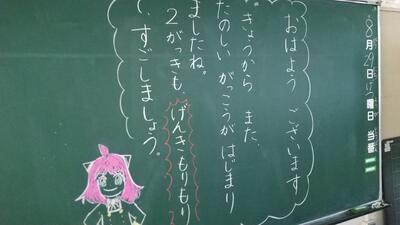 8月29日 曜日 当番
おはよう ございます
。きょうから また、
たのしい がっこうが はじまり
ましたね。
2がっきも、げんきもりもり
で、すごしましょう。